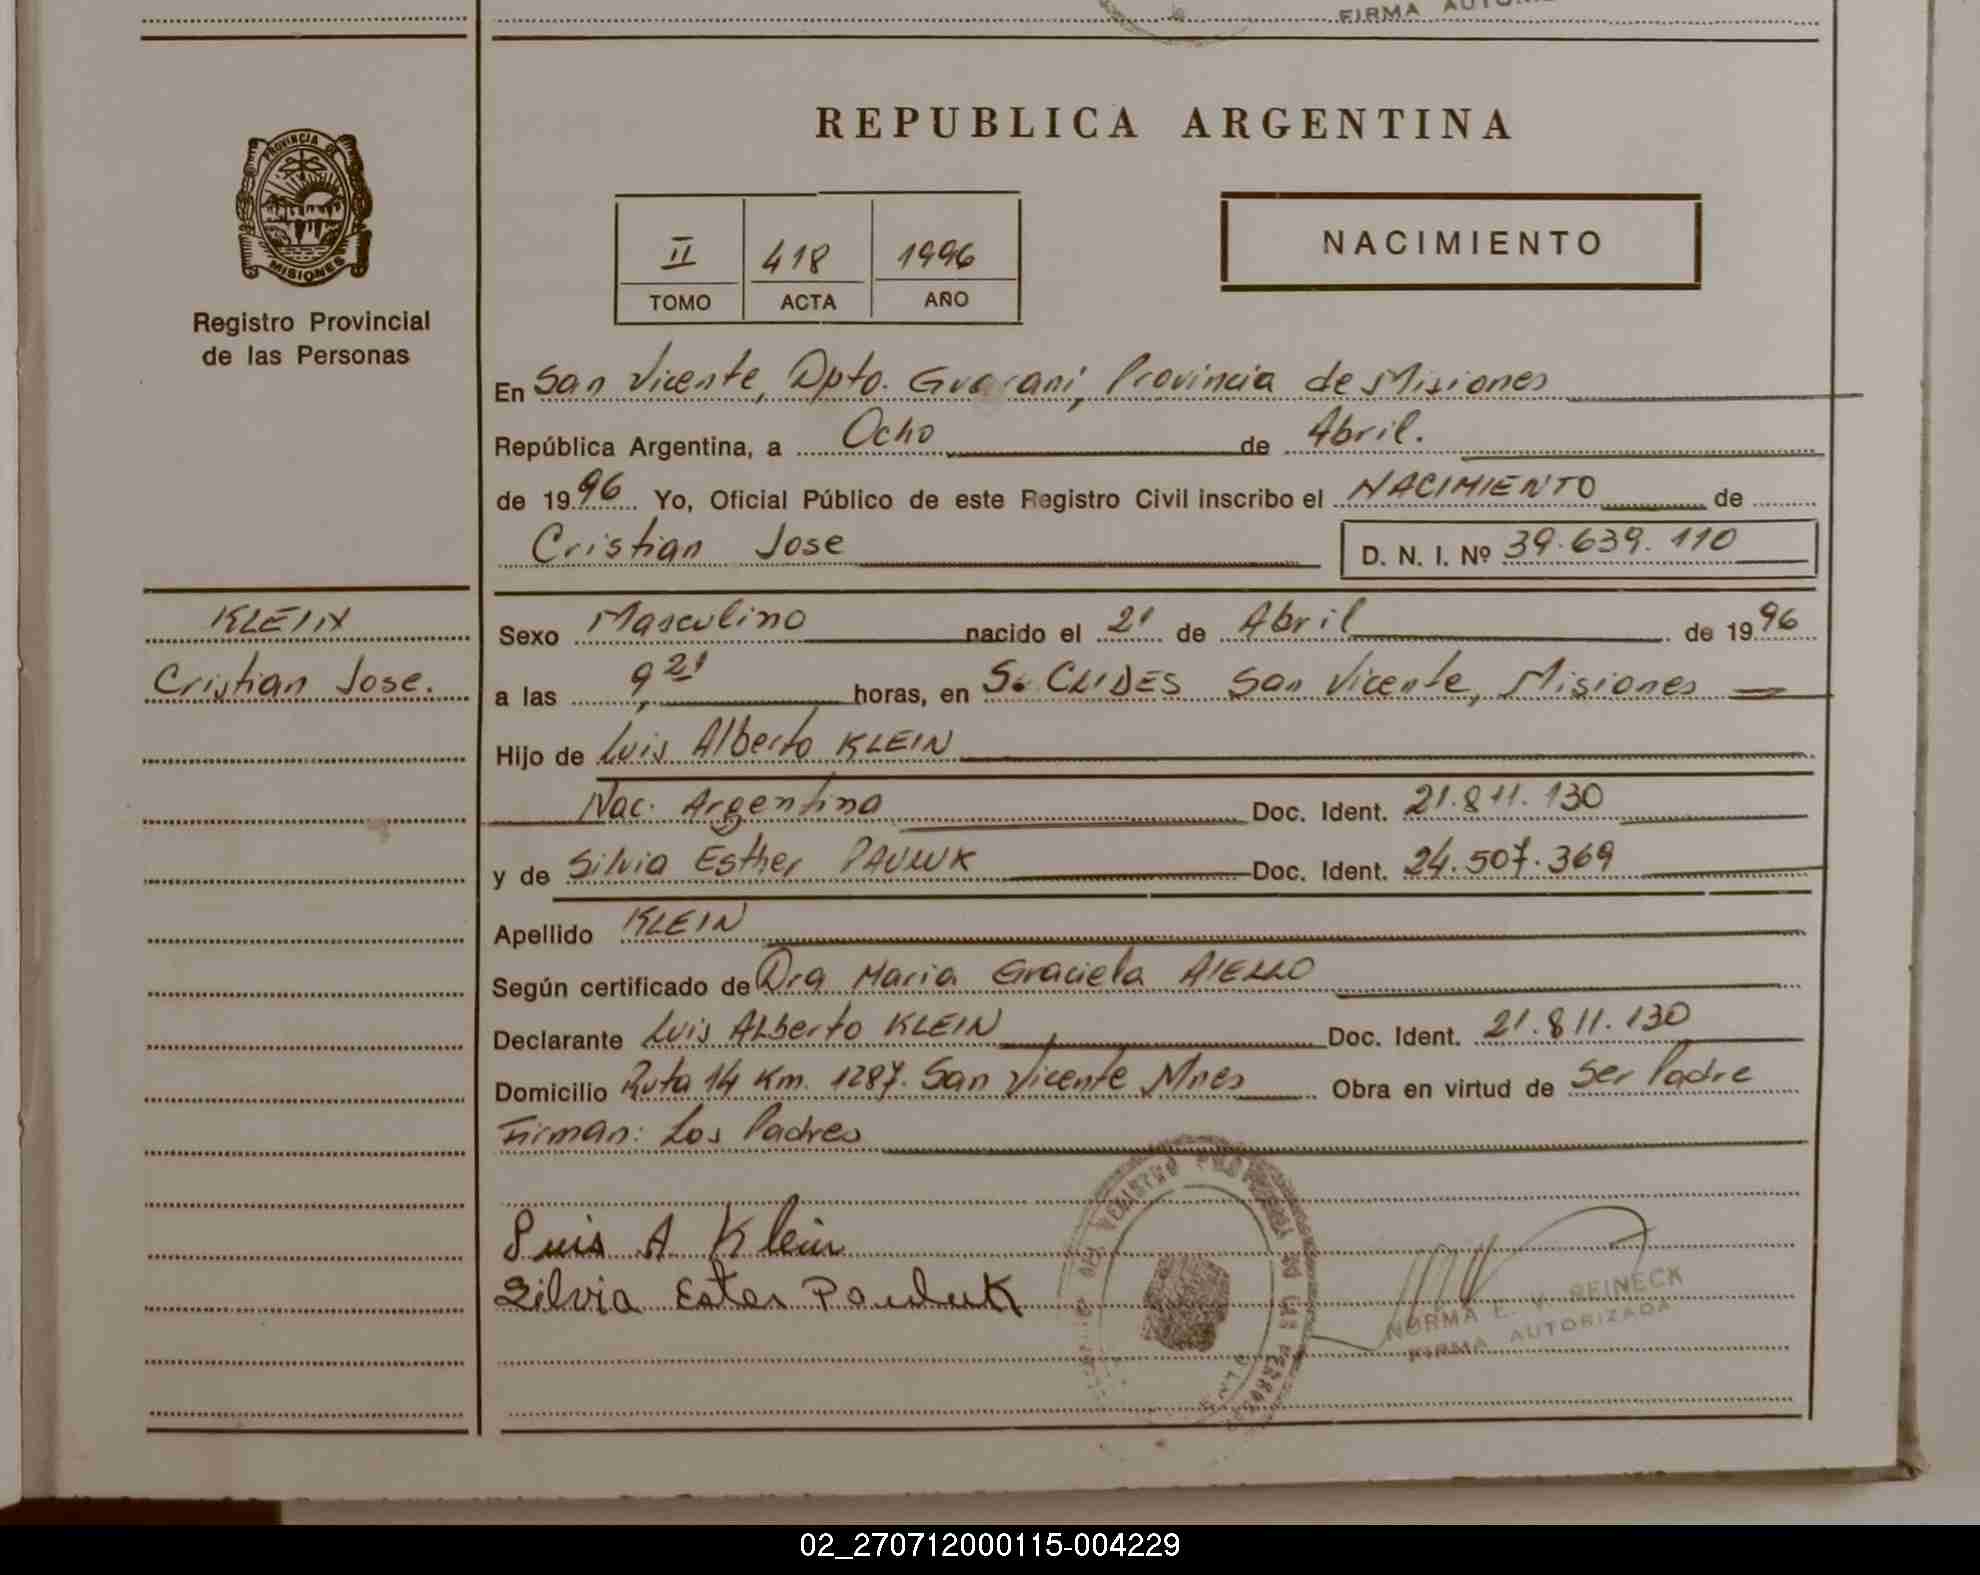 FIRMA
REPUBLICA ARGENTINA
PROVINCIA DE
MISIONES
Registro Provincial
de las Personas
II 418 1996
TOMO ACTA AÑO
NACIMIENTO
En San Vicente, Dpto. Guarani, Provincia de Misiones
República Argentina, a Ocho de Abril.
de 1996 Yo, Oficial Público de este Registro Civil inscribo el NACIMIENTO de
Cristian Jose D. N. I. Nº 39.639.110
KLEIN
Cristian Jose.
Sexo Masculino nacido el 21 de Abril de 1996
a las 9,21 horas, en San Vicente, Misiones
Hijo de Luis Alberto KLEIN
Nac. Argentina Doc. Ident. 21.811.130
y de Silvia Esther PAULUK Doc. Ident. 24.507.369
Apellido KLEIN
Según certificado de Dra Maria Graciela AIELLO
Declarante Luis ALberto KLEIN Doc. Ident. 21.811.130
Domicilio Ruta 14 Km. 1287. San Vicente Mnes Obra en virtud de Ser Padre
Firman: Los Padres
Luis A Klein
Silvia Ester Pauluk
NORMA E. V. REINECK
FIRMA AUTORIZADA
02_270712000115-004229